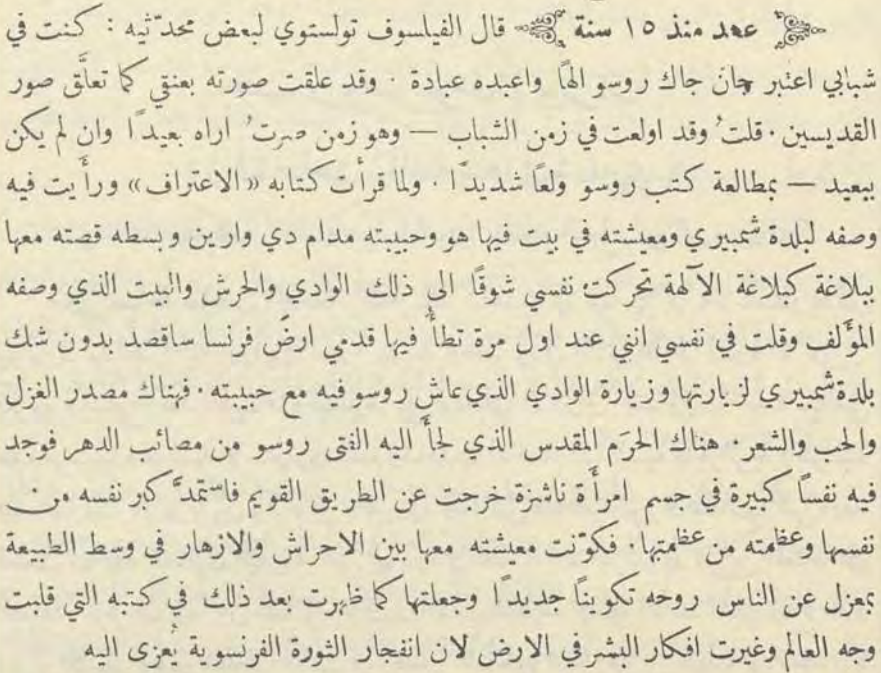 عهد منذ ١٥ سنة قال الفيلسوف تولستوي لبعض محدّثيه : كنت في
شبابي اعتبر جان جاك روسو الهاً واعبده عبادة . وقد علقت صورته بعنقي كما تعلَّق صور
القديسين . قلتُ وقد اولعت في زمن الشباب — وهو زمن صرتُ اراه بعيداً وان لم يكن
ببعيد — بمطالعة كتب روسو ولعاً شديداً . ولما قرأت كتابه « الاعتراف » ورأيت فيه
وصفه لبلدة شمبيري ومعيشته في بيت فيها هو وحبيبته مدام دي وارين وبسطه قصته معها
ببلاغة كبلاغة الآلهة تحركت نفسي شوقاً الى ذلك الوادي والحرش والبيت الذي وصفه
المؤَلف وقلت في نفسي انني عند اول مرة تطأُ فيها قدمي ارض فرنسا ساقصد بدون شك
بلدة شمبيري لزيارتها وزيارة الوادي الذي عاش روسو فيه مع حبيبته . فهناك مصدر الغزل
والحب والشعر . هناك الحرَم المقدس الذي لجأَ اليه الفتى روسو من مصائب الدهر فوجد
فيه نفساً كبيرة في جسم امرأَة ناشزة خرجت عن الطريق القويم فاستمدَّ كبر نفسه من
نفسها وعظمته من عظمتها . فكوَّنت معيشته معها بين الاحراش والازهار في وسط الطبيعة
بمعزل عن الناس روحه تكويناً جديداً وجعلتها كما ظهرت بعد ذلك في كتبه التي قلبت
وجه العالم وغيرت افكار البشر في الارض لان انفجار الثورة الفرنسوية يُعزى اليه